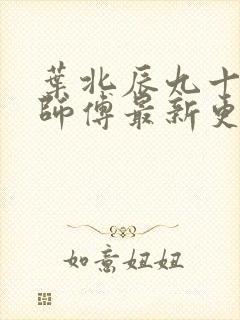 葉北辰九十
師傅最新更
如意妞妞